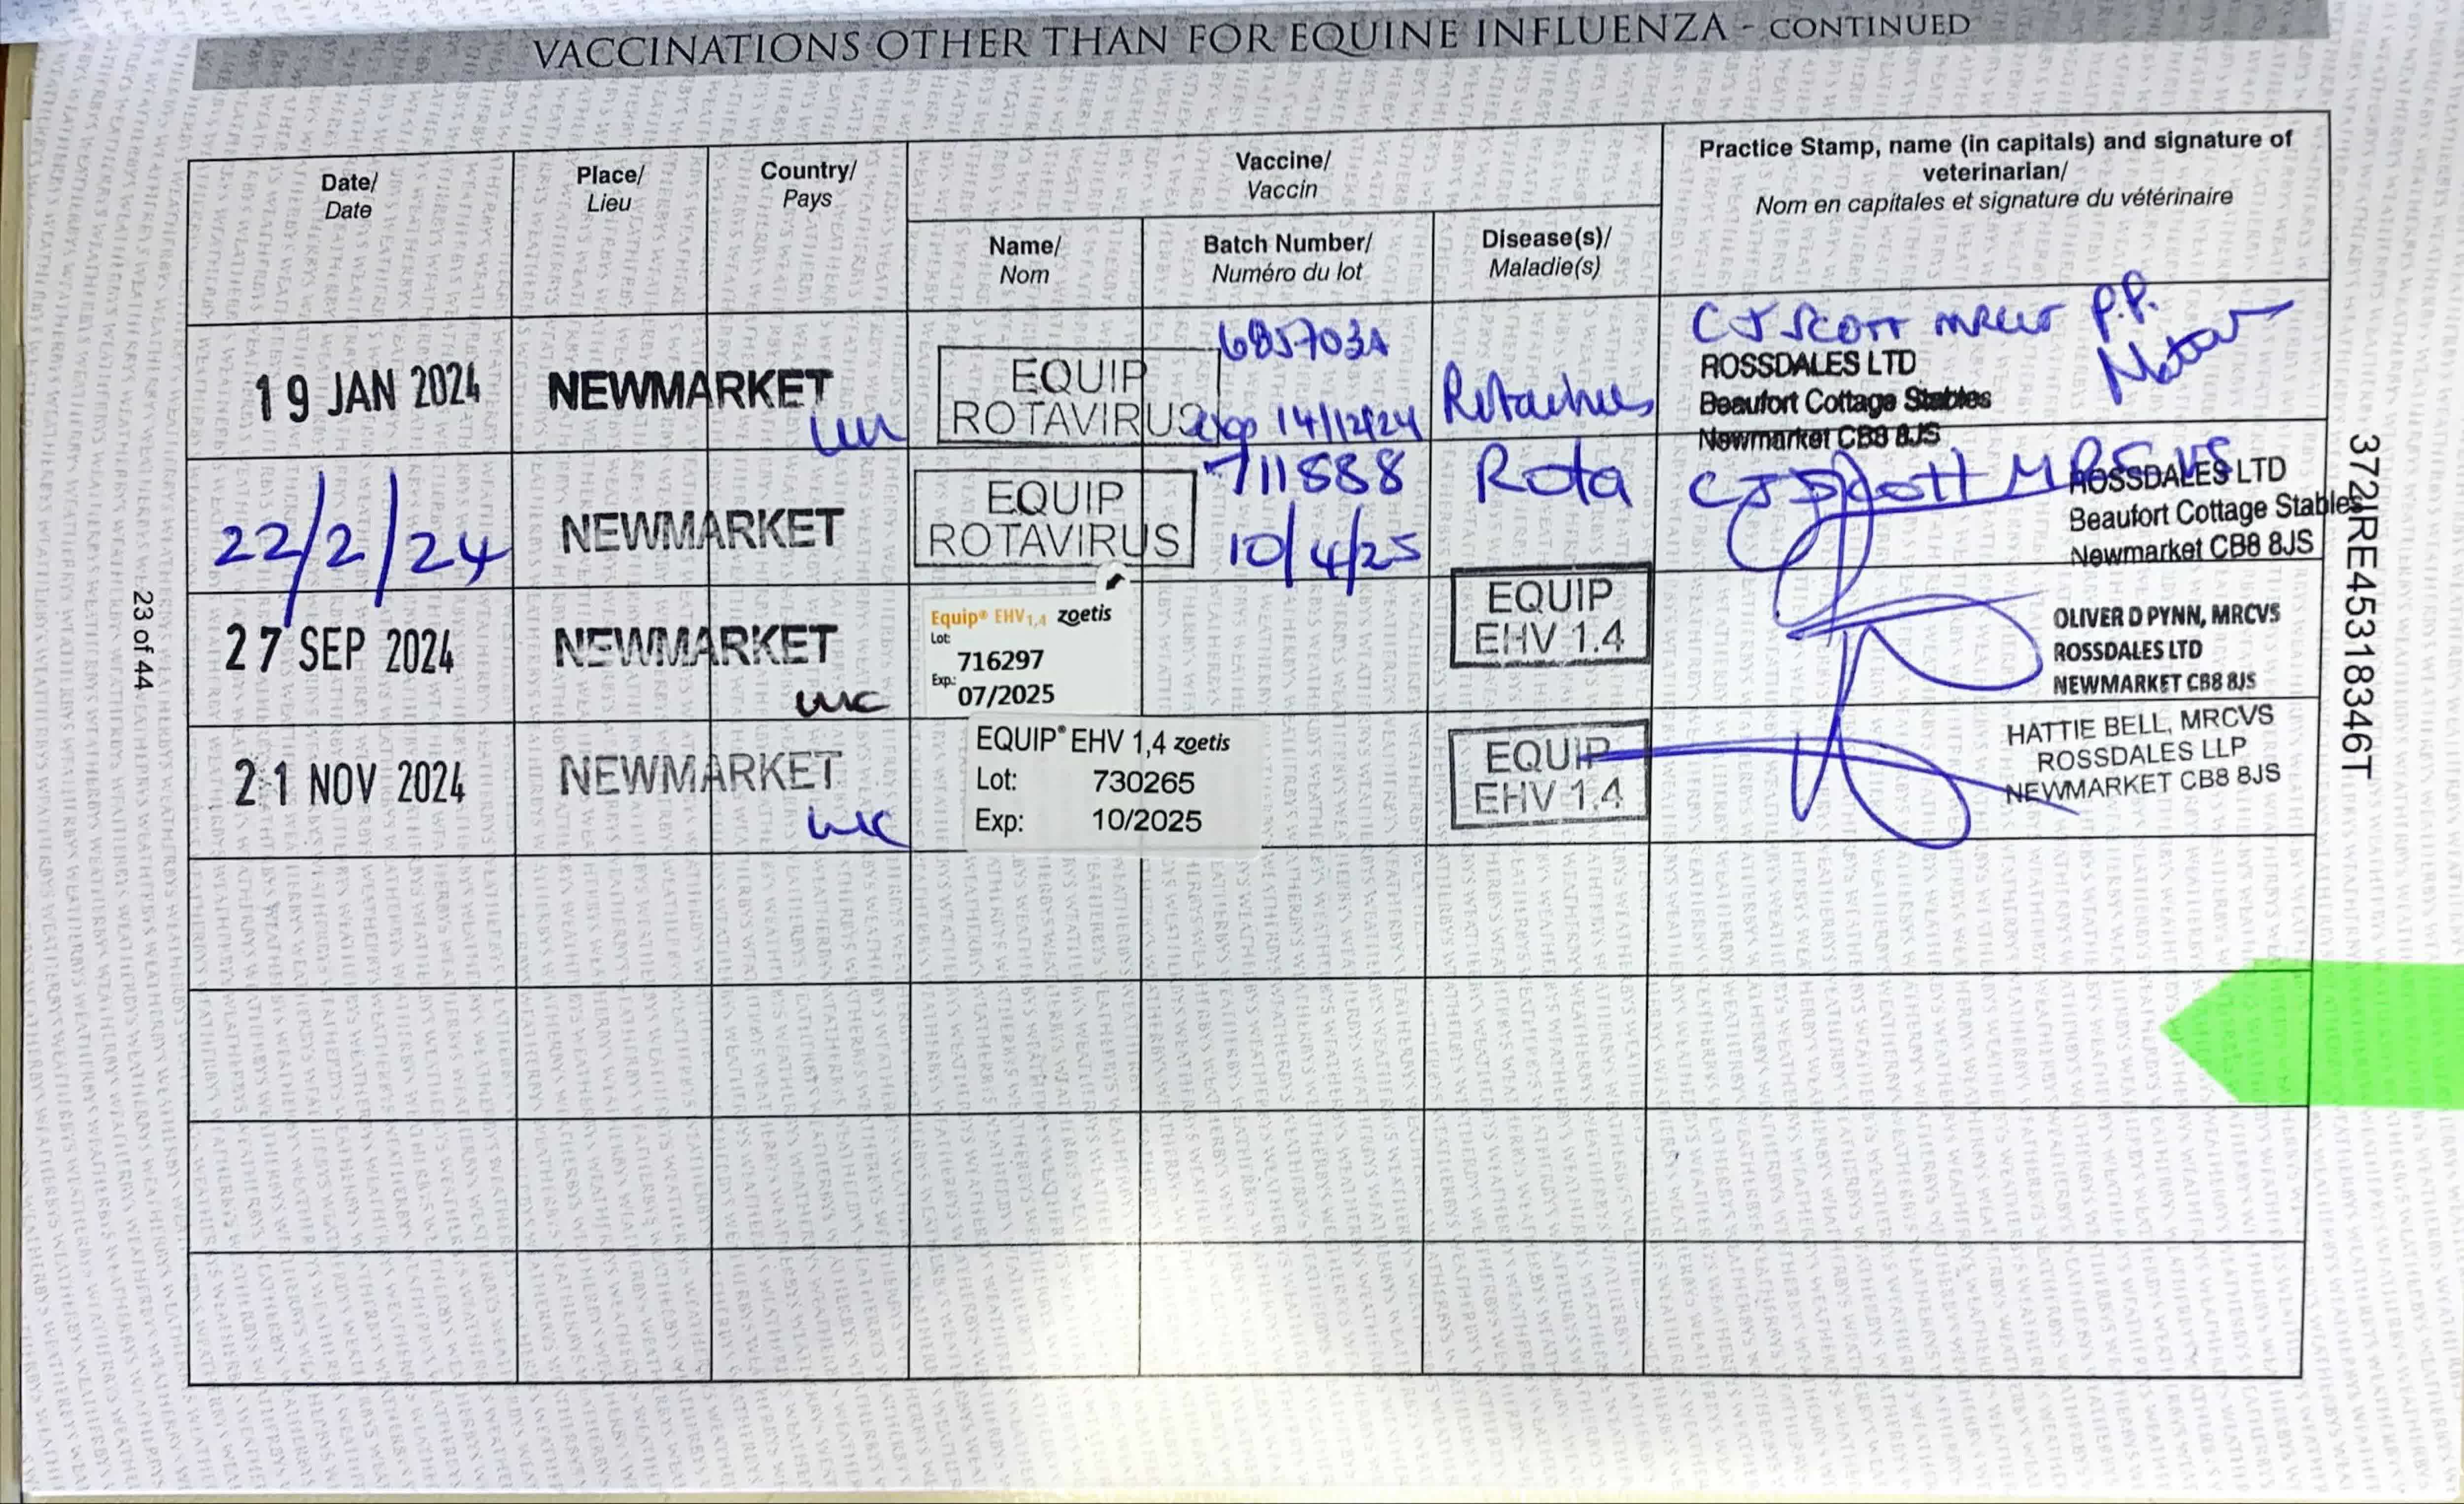 VACCINATIONS OTHER THAN FOR EQUINE INFLUENZA - CONTINUED
Date/
Date
Place/
Lieu
Country/
Pays
Vaccine/
Vaccin
Name/
Nom
Batch Number/
Numéro du lot
Disease(s)/
Maladie(s)
Practice Stamp, name (in capitals) and signature of
veterinarian/
Nom en capitales et signature du vétérinaire
19 JAN 2024
NEWMARKET
UK
EQUIP
ROTAVIRUS
685703A
exp 14/12/24
Rotavirus
CJ SCOTT MRCVS P.P.
ROSSDALES LTD
Beaufort Cottage Stables
Newmarket CB8 8JS
22/2/24
NEWMARKET
EQUIP
ROTAVIRUS
711588
10/4/25
Rota
CJ Scott MRCVS
ROSSDALES LTD
Beaufort Cottage Stables
Newmarket CB8 8JS
27 SEP 2024
NEWMARKET
UK
Equip® EHV1,4 zoetis
Lot:
716297
Exp.:
07/2025
EQUIP
EHV 1.4
OLIVER D PYNN, MRCVS
ROSSDALES LTD
NEWMARKET CB8 8JS
21 NOV 2024
NEWMARKET
UK
EQUIP® EHV 1,4 zoetis
Lot: 730265
Exp: 10/2025
EQUIP
EHV 1.4
HATTIE BELL, MRCVS
ROSSDALES LLP
NEWMARKET CB8 8JS
23 of 44
372IRE45318346T